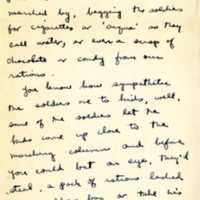 marched by, begging the soldies
for cigarettes or "acqua" as they
call water, or even a scrap of
chocolate or candy from our
rations.
You know how sympathetic
the soldiers are to kids, well,
some of the soldiers let the
kids come up close to the
marching column and before
you could bat an eye, they'd
steal a pack of rations lashed
bag or take his